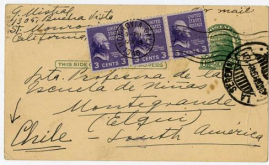 G. Mistral
1305 Buena Vista
air mail
California
THIS SIDE
3 CENTS 3
3 CENTS 3
3 CENTS 3
Srta. Profesora de la
Escuela de Niñas
Montegrande
(Elqui)
Chile
South America